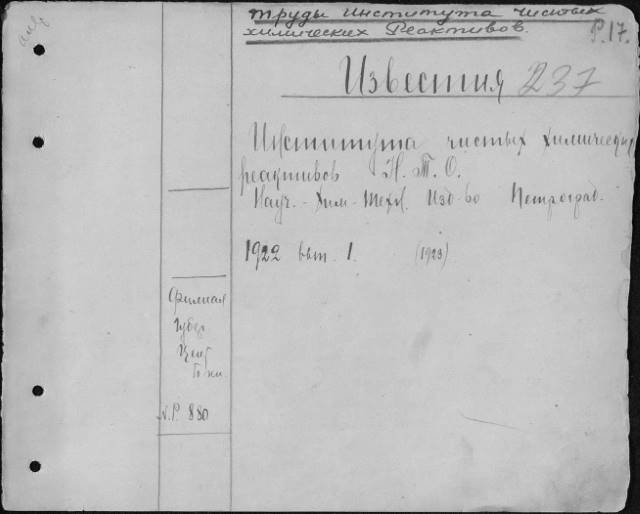 Труды Института чистых
химических Реактивов.
P.17.
Известия 237
Института чистых химических
реактивов Н.Т.О.
Науч.-Хим-Техн. Изд-во Петроград.
1922 вып. 1. (1923)
Филиал
Губер
N.P. 880